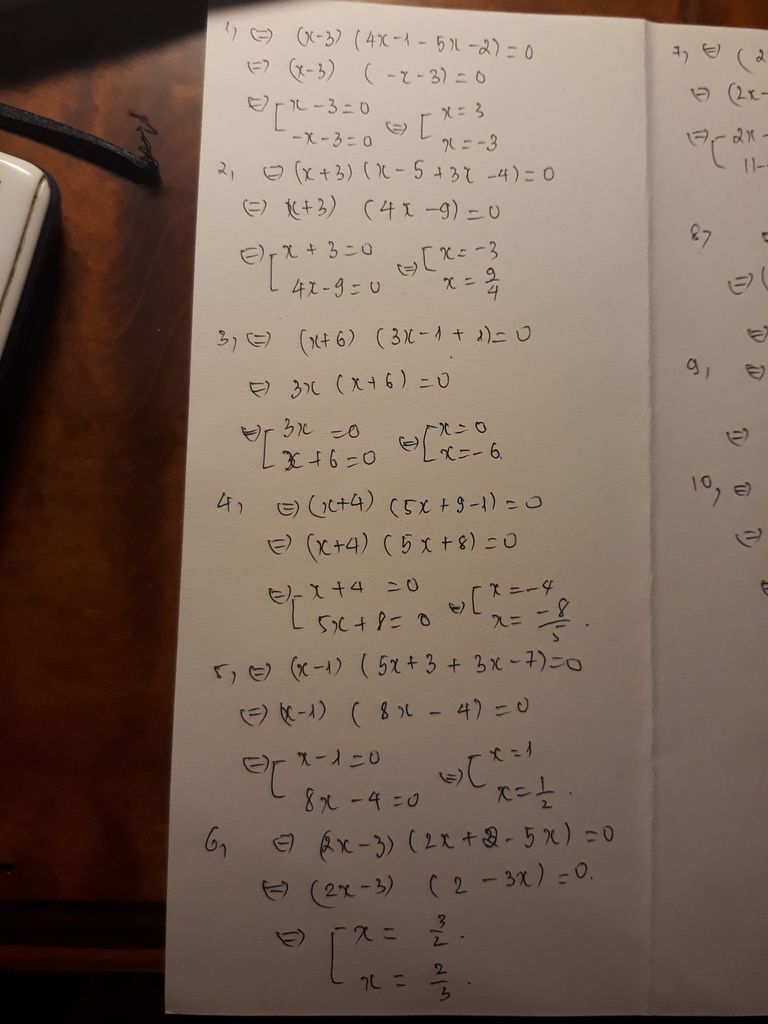 1, ⇔ (x-3) (4x-1 - 5x - 2) = 0
⇔ (x-3) (-x-3) = 0
⇔ [ x - 3 = 0
-x-3 = 0 ⇔ [ x = 3
x = -3
2, ⇔ (x+3) (x - 5 + 3x - 4) = 0
⇔ (x+3) (4x - 9) = 0
⇔ [ x + 3 = 0
4x - 9 = 0 ⇔ [ x = -3
x = 9/4
3, ⇔ (x+6) (3x - 1 + 1) = 0
⇔ 3x (x+6) = 0
⇔ [ 3x = 0
x + 6 = 0 ⇔ [ x = 0
x = -6.
4, ⇔ (x+4) (5x + 9 - 1) = 0
⇔ (x+4) (5x + 8) = 0
⇔ [ x + 4 = 0
5x + 8 = 0 ⇔ [ x = -4
x = -8/5.
5, ⇔ (x-1) (5x + 3 + 3x - 7) = 0
⇔ (x-1) (8x - 4) = 0
⇔ [ x - 1 = 0
8x - 4 = 0 ⇔ [ x = 1
x = 1/2.
6, ⇔ (2x-3) (2x + 2 - 5x) = 0
⇔ (2x-3) (2 - 3x) = 0.
⇔ [ x = 3/2.
x = 2/3.
7, ⇔ (2
⇔ (2x-
⇔ [ 2x -
11-
8,
⇔ (
⇔
9, ⇔
⇔
10, ⇔
⇔